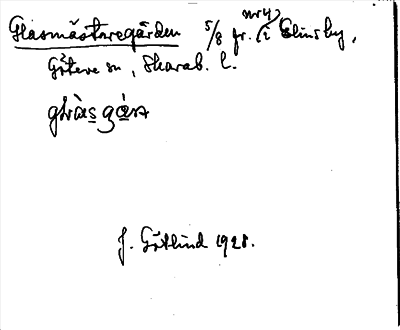 Glasmästaregården 5/8 fr. nr 4 i Elinsby,
Götene sn, Skarab. l.
J. Götlind 1928.